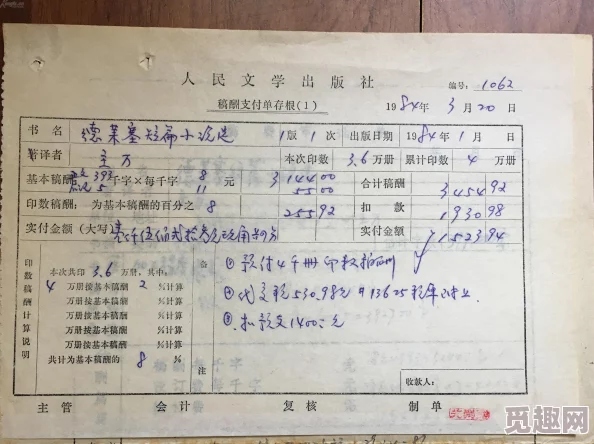 人民文学出版社
编号: 1062
稿酬支付单存根(1)
1984年3月20日
书名 德莱塞短篇小说选 1版1次 出版日期 1984年1月 日
著译者 主万 本次印数 3.6万册 累计印数 4万册
基本稿酬: 393千字×每千字 8元 3144 00 合计稿酬 3454 92
5 11 55 00
印数稿酬: 为基本稿酬的百分之 8 255 92 扣款 1930 98
实付金额(大写) 壹仟伍佰贰拾叁元玖角肆分 实付金额 1523 94
印数稿酬计算说明
本次共印3.6万册,其中:
4万册按基本稿酬 2 %计算
万册按基本稿酬 %计算
万册按基本稿酬 %计算
万册按基本稿酬 %计算
万册按基本稿酬 %计算
共计为基本稿酬的 8 %
备注
① 预付4千册印数稿酬
② 代交税530.98元
③ 扣预支1400元
收款人:
主管 会计 复核 制单
觅趣网